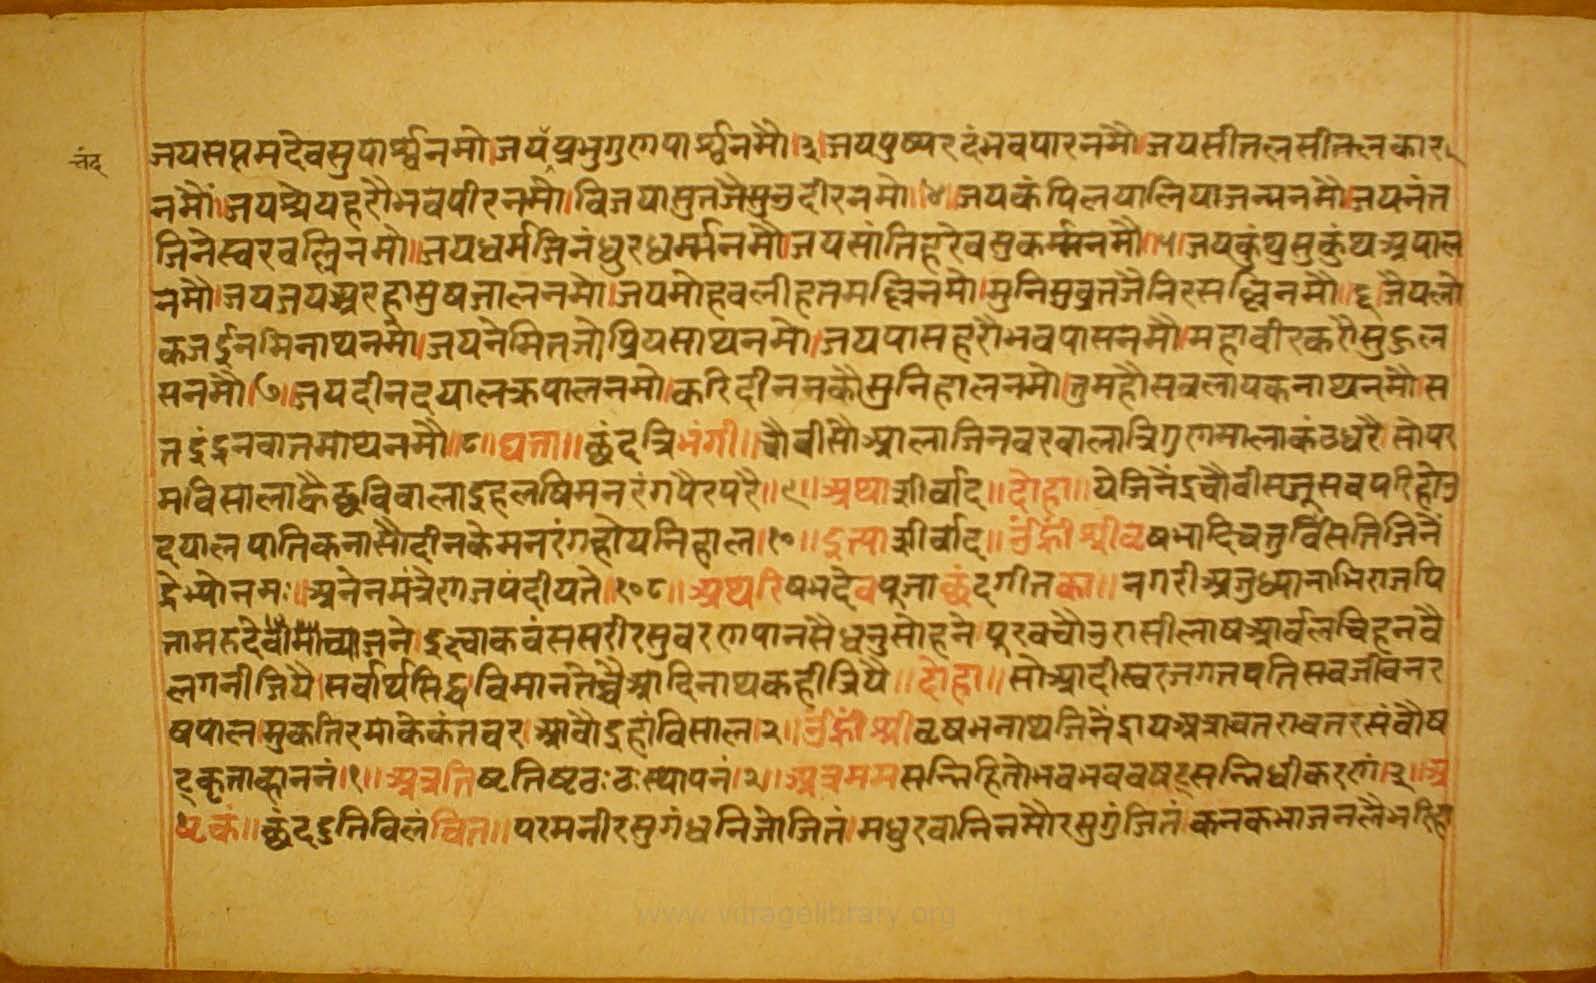 चंद
जयसप्तमदेवसुपार्श्वनमो।जयप्रभुगुणपार्श्वनमौ।३।जयपुष्परदंभवपारनमौ।जयसीतलसीतलकार
नमौं।जयश्रेयहरौभवपीरनमौ।विजयासुतजैसुउदीरनमो।४।जयकंपिलयालियाजन्मनमौ।जयनंत
जिनेस्वरवल्लिनमो॥जयधर्मजिनंधुरधर्म्मनमौ।जयसांतिहरेवसुकर्म्मनमौ।५।जयकुंथुसुकुंथुअपाल
नमौ।जयजयअरहासुषजालनमो।जयमोहवलीहतमल्लिनमो।मुनिसुव्रतजैनिरसल्लिनमौ।६।जैपलो
कजईनमिनाथनमो।जयनेमितजोप्रियसाथनमो।जयपासहरौभवपासनमौ।महावीरकरौसुहुल
सनमौ।७।जयदीनदयालक्रपालनमो।करिदीननकौसुनिहालनमो।तुमहौसवलायकनाथनमौ।स
तइंद्रनवातमाथनमौ॥८॥घत्ता॥छंदत्रिभंगी॥चौवीसौंआलाजिनवरवालात्रिगुणमालाकंठधरै सोपर
मविसालाकैछविवालाइहलषिमनरंगपैरपरै॥९॥अथाशीर्वाद॥दोहा॥येजिनेंद्रचौवीसजुसवपरिहोउ
दयाल पातिकनासौदीनकेमनरंगहोयनिहाल।१०॥इत्याशीर्वाद॥उंह्रींश्रीवृषभादिचतुर्विंसतिजिनें
द्रेभ्योनमः॥अनेनमंत्रेणजपंदीयते॥१०८॥अथरिषभदेवपूजाछंदगीतका॥नगरीअजुध्यानाभिराजपि
तामरुदेवीमाव्याजने।इक्ष्वाकवंससरीरसुवरणपानसैधनुसोहने पूरवचौउरासीलाषआर्वलचिहनवै
लगनीजियै।सर्वार्थसिद्धविमानतेच्वैआदिनाथकहीजियै॥दोहा॥सोआदीस्वरजगतपतिसवजीवनर
षपाल।मुकतिरमाकेकंतवर।आवौइहांविसाल।२॥उंह्रींश्रीवृषभनाथजिनेंद्रायअत्रावतरावतरसंवौष
ट्कृताव्हाननं।१॥अत्रतिष्टतिष्टठःठःस्थापनं।२॥अत्रममसन्निहितोभवभववषट्सन्निधीकरणं।३॥अ
ष्टकं॥छंदद्रुतिविलंवित॥परमनीरसुगंधनिजोजितं।मधुरवानिनमौरसुगुंजितं।कनकभाजनलैभरि
www.vitragelibrary.org